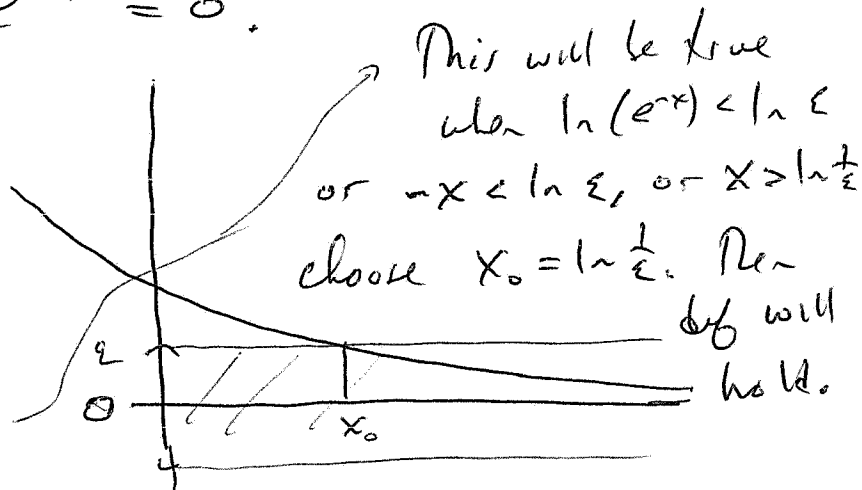 = 0.
This will be true
when ln(e^-x) < ln ε
or -x < ln ε, or x > ln 1/ε
choose x₀ = ln 1/ε. Then
def will
hold.
ε
0
x₀